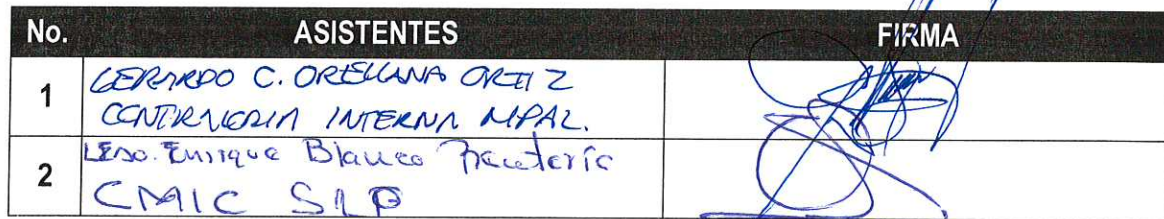 No. ASISTENTES FIRMA
1 GERARDO C. ORELLANA ORTIZ
CONTRALORIA INTERNA MPAL.
2 Enrique Blanco
CMIC SLP